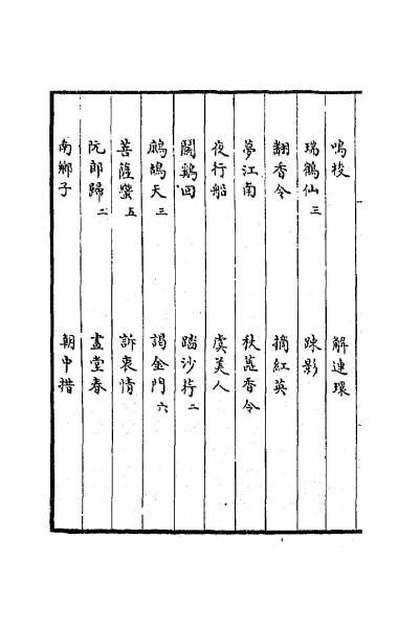 鳴梭 解連環
瑞鶴仙三 疎影
翻香令 摘紅英
夢江南 秋蕊香令
夜行船 虞美人
鬬鷄回 踏沙行二
鷓鴣天三 謁金門六
菩薩蠻五 訴衷情
阮郎歸二 畫堂春
南鄉子 朝中措